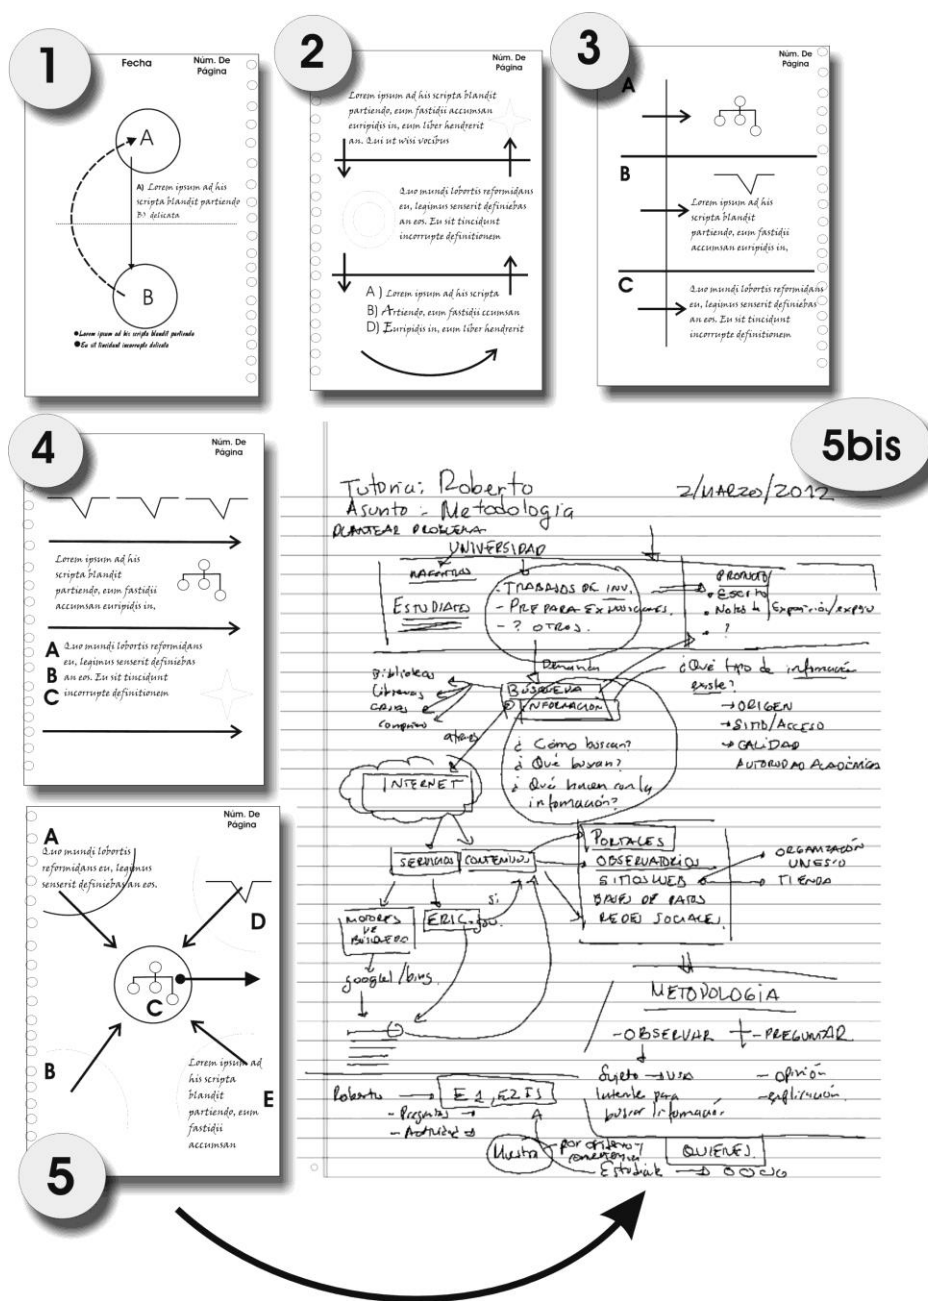 1
Fecha
Núm. De
Página
A
A) Lorem ipsum ad his
scripta blandit partiendo
B) delicata
B
Lorem ipsum ad his scripta blandit partiendo
Eu sit tincidunt incorrupte delicata
2
Núm. De
Página
Lorem ipsum ad his scripta blandit
partiendo, eum fastidii accumsan
euripidis in, eum liber hendrerit
an. Qui ut wisi vocibus
Quo mundi lobortis reformidans
eu, legimus senserit definiebas
an eos. Eu sit tincidunt
incorrupte definitionem
A ) Lorem ipsum ad his scripta
B) Artiendo, eum fastidii ccumsan
D) Euripidis in, eum liber hendrerit
3
Núm. De
Página
A
B
Lorem ipsum ad his
scripta blandit
partiendo, eum fastidii
accumsan euripidis in,
C
Quo mundi lobortis reformidans
eu, legimus senserit definiebas
an eos. Eu sit tincidunt
incorrupte definitionem
4
Núm. De
Página
Lorem ipsum ad his
scripta blandit
partiendo, eum fastidii
accumsan euripidis in,
A Quo mundi lobortis reformidans
eu, legimus senserit definiebas
B an eos. Eu sit tincidunt
C incorrupte definitionem
5
Núm. De
Página
A
Quo mundi lobortis
reformidans eu, legimus
senserit definiebas an eos.
D
C
B
Lorem ipsum ad
his scripta
blandit
partiendo, eum
fastidii
accumsan
E
5bis
Tutoria: Roberto
2/MARZO/2012
Asunto:- Metodologia
PLANTEAR PROBLEMA
UNIVERSIDAD
MAESTROS
ESTUDIATES
- TRABAJOS DE INV.
- PREPARA EXPOSICIONES.
- ? OTROS.
PRODUCTO
Escrito
Notas
Exposición
?
Demandan
Bibliotecas
Librerias
BÚSQUEDA
INFORMACIÓN
¿Qué tipo de información
existe?
ORIGEN
SITIO/ACCESO
CALIDAD
AUTORIDAD ACADÉMICA
¿ Cómo buscan?
¿ Qué buscan?
¿ Qué hacen con la
información?
INTERNET
SERVICIOS
CONTENIDOS
PORTALES
OBSERVATORIOS
SITIOS WEB
BASES DE DATOS
REDES SOCIALES
ORGANIZACIÓN
UNESCO
TIENDA
MOTORES
DE
BÚSQUEDA
ERIC.
si
google/bing.
METODOLOGIA
- OBSERVAR + - PREGUNTAR
Sujeto → usa
Internet para
buscar Información
- Opinión
- explicación.
Roberto
E1, E2
- Preguntas
- Actividad
Muestra
Estudiante
QUIENES